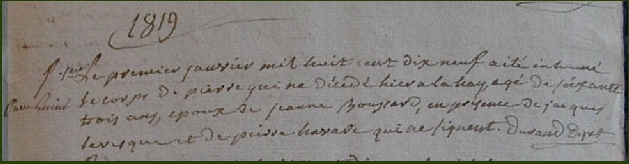 1819
Le premier janvier mil huit cent dix neuf a été inhumé
le corps de pierre qui ne décédé hier a la hay, agé de soixante
trois ans, epoux de jeanne Boussard, en presence de jacques
levesque et de pierre havard qui ne signent. Durand